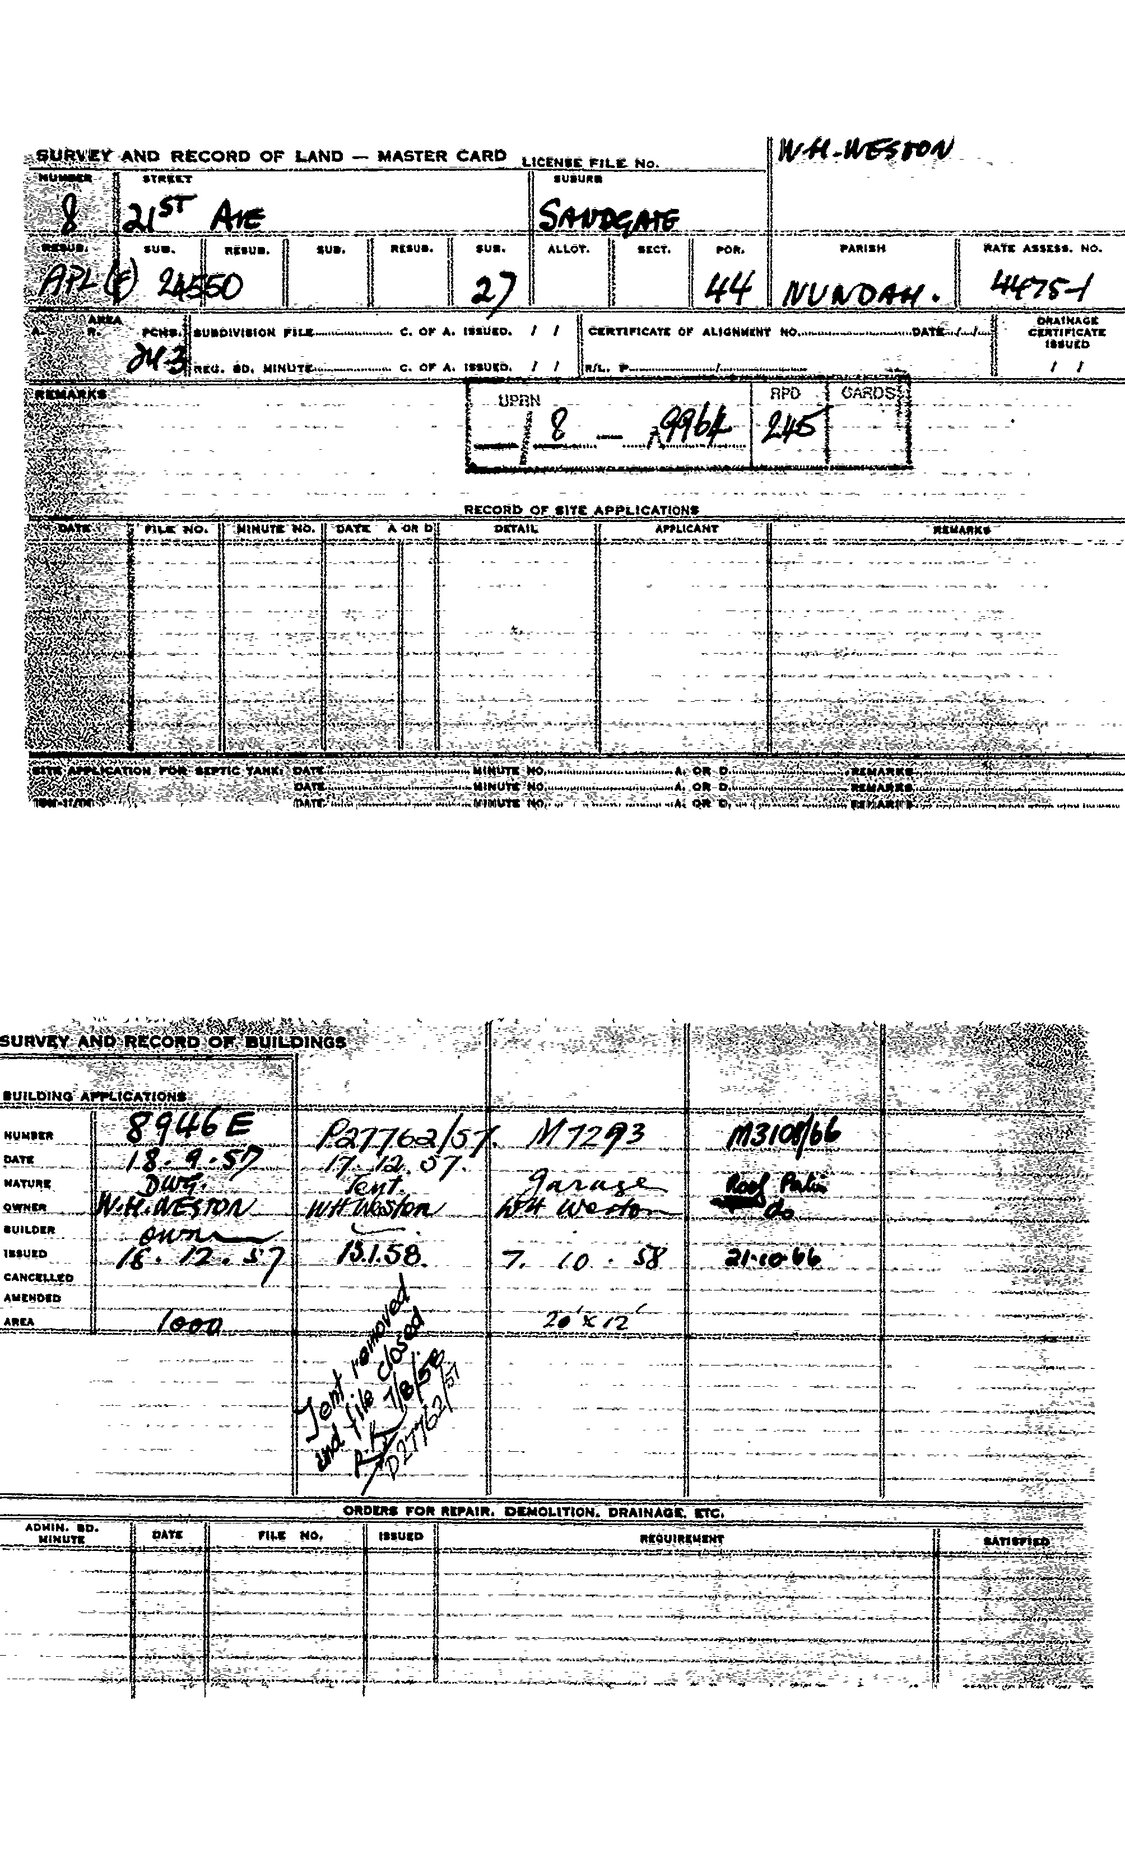 W.H. WESTON
SURVEY AND RECORD OF LAND — MASTER CARD LICENSE FILE No.
NUMBER STREET SUBURB
8 21ST AVE SANDGATE
RESUB. SUB. RESUB. SUB. RESUB. SUB. ALLOT. SECT. POR. PARISH RATE ASSESS. NO.
APL (E) 24550 27 44 NUNDAH. 4475-1
A. AREA R. PCHS. SUBDIVISION FILE C. OF A. ISSUED. / / CERTIFICATE OF ALIGNMENT NO. DATE / / DRAINAGE CERTIFICATE ISSUED
24.3 REG. BD. MINUTE C. OF A. ISSUED. / / R/L. P. / / /
REMARKS UPRN RPD CARDS
/ 8 — 9964 245
RECORD OF SITE APPLICATIONS
DATE FILE NO. MINUTE NO. DATE A OR D DETAIL APPLICANT REMARKS
SITE APPLICATION FOR SEPTIC TANK: DATE MINUTE NO. A. OR D. REMARKS
DATE MINUTE NO. A. OR D. REMARKS
DATE MINUTE NO. A. OR D. REMARKS
SURVEY AND RECORD OF BUILDINGS
BUILDING APPLICATIONS
NUMBER 8946E P27762/57. M7293 M3108/66
DATE 18.9.57 17.12.57.
NATURE DWG. Tent. garage Roof Patio
OWNER W.H. WESTON WH Weston WH Weston do
BUILDER owner
ISSUED 18.12.57 13.1.58. 7.10.58 21.10.66
CANCELLED
AMENDED
AREA 1000 20' x 12'
Tent removed
and file closed
7/8/58
D27762/57
ORDERS FOR REPAIR, DEMOLITION, DRAINAGE, ETC.
ADMIN. BD. MINUTE DATE FILE NO. ISSUED REQUIREMENT SATISFIED